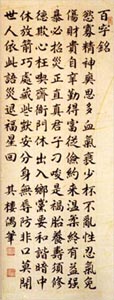 百字銘
慾寡精神爽思多血氣衰少杯不亂性忍氣免
傷財貴自辛勤得富從儉約來溫柔終有益強
暴必招災正直真君子刁唆是禍胎養壽須修
德欺心枉喫齋衙門休出入鄉黨要和諧暗中
休放箭巧處藏些獃安分身無辱是非口莫開
世人依此語災退福星回 其樓偶筆